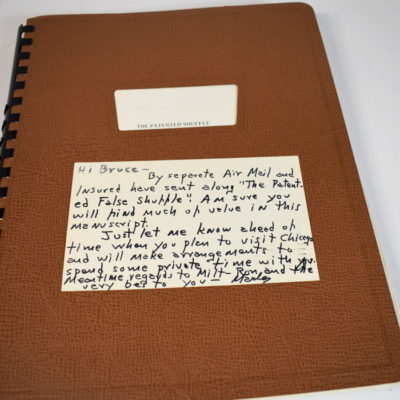 THE PATENTED SHUFFLE
Hi Bruce -
By separate Air Mail and
Insured have sent along "The Patent-
ed False Shuffle". Am sure you
will find much of value in this
manuscript.
Just let me know ahead of
time when you plan to visit Chicago
and will make arrangements to
spend some private time with you.
Meantime regards to Milt - Ron and the
very best to you - Marlo